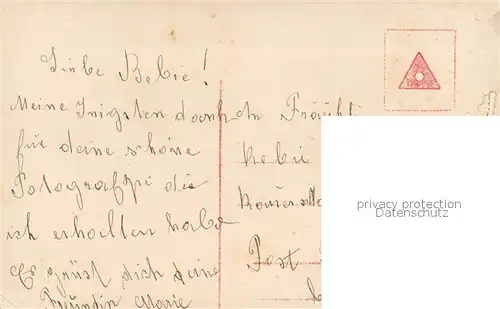 Liebe Bebie!
Meine Inigsten dank
für deine schöne
Fotografhpi die
ich erhallen habe
Es grüst dich deine
Freundin Marie
An Fräul
Bebie
Post
privacy protection
Datenschutz